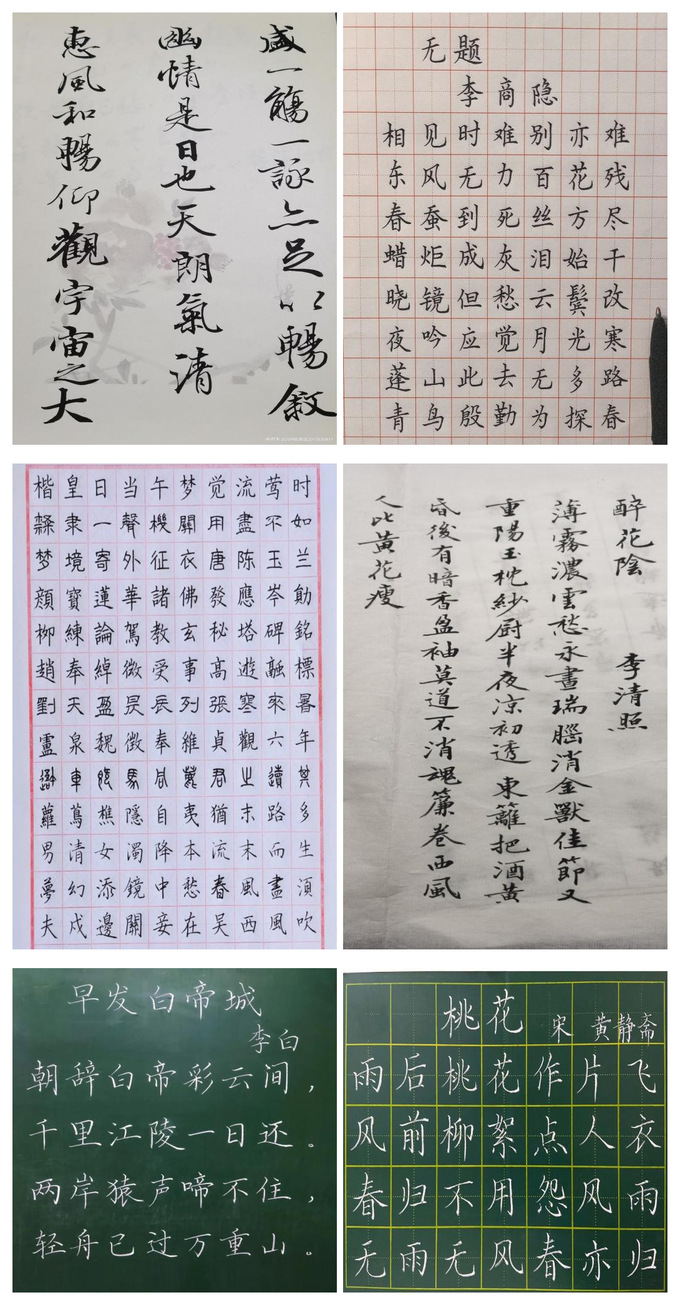 盛一觴一詠亦足以暢敘
幽情是日也天朗氣清
惠風和暢仰觀宇宙之大
无题
李商隐
相见时难别亦难
东风无力百花残
春蚕到死丝方尽
蜡炬成灰泪始干
晓镜但愁云鬓改
夜吟应觉月光寒
蓬山此去无多路
青鸟殷勤为探春
楷皇日当午梦觉流莺时
隶一聲機關用盡不如
梦境寄外征衣唐陈玉兰
顏寶蓮華諸佛發應岑勛
柳練論駕教玄秘塔碑銘
趙奉綽微受事高遊融標
劉天盈昃辰列張寒來暑
盧泉魏徵奉維貞觀六年
車馬君之讀其
蘿蔦樵隱自夷猶末路多
男清女濁降本流末而生
夢幻添鏡中愁春風盡須
夫戍邊關妾在吴西風吹
醉花陰 李清照
薄霧濃雲愁永晝瑞腦消金獸佳節又
重陽玉枕紗厨半夜凉初透東籬把酒黄
昏後有暗香盈袖莫道不消魂簾卷西風
人比黄花瘦
早发白帝城
李白
朝辞白帝彩云间，
千里江陵一日还。
两岸猿声啼不住，
轻舟已过万重山。
桃花 宋 黄静斋
雨后桃花作片飞
风前柳絮点人衣
春归不用怨风雨
无雨无风春亦归